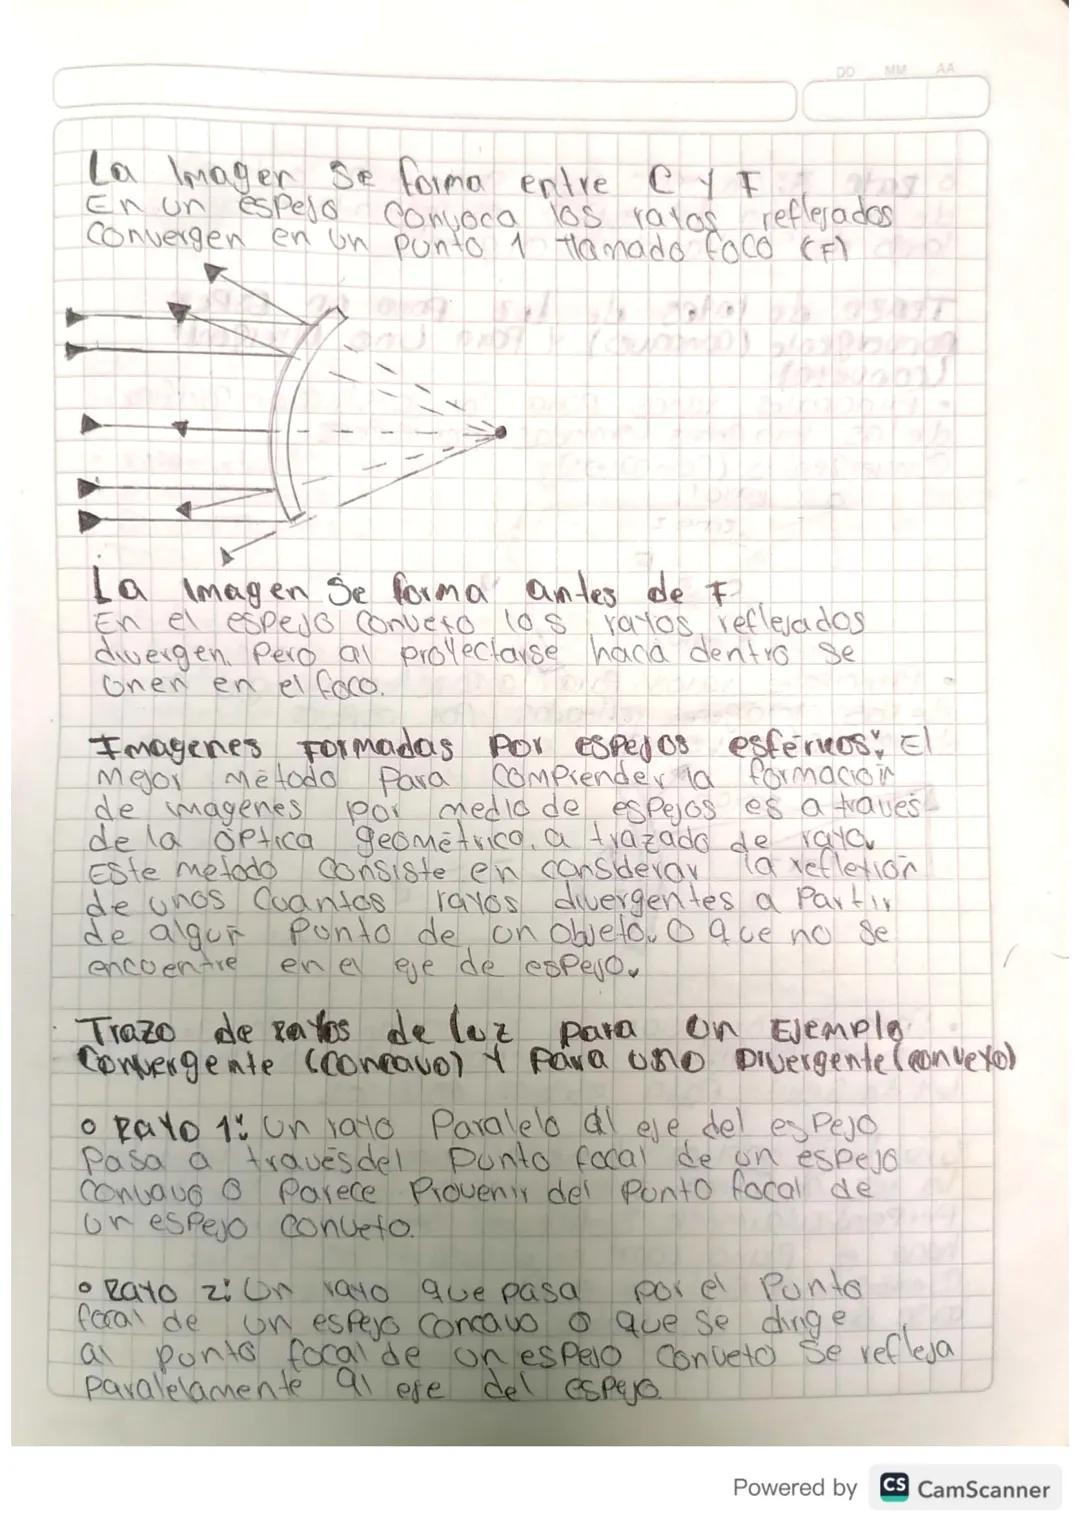 DD MM AA
La Imagen Se forma entre C y F
En un espejo convoca los rayos reflejados
convergen en un punto 1 llamado foco (F)
La imagen Se forma antes de F
En el espejo conveto los rayos reflejados
divergen. Pero al proyectarse hacia dentro se
unen en el foco.
Imagenes Formadas Por espejos esféricos: El
Mejor método Para comprender la formación
de imagenes por medio de espejos es a traves
de la óptica geométrico. a trazado de raya.
Este metodo consiste en considerar la reflexión
de unos cuantos rayos divergentes a Partir
de algun Punto de un objeto. O que no se
encuentre en el eje de espejo.
Trazo de rayos de luz para un Ejemplo
Convergente (concavo) y Para uno Divergente (convexo)
• Rayo 1: Un rayo Paralelo al eje del espejo
Pasa a través del Punto focal de un espejo
convavo o Parece Provenir del Punto focal de
un espejo conveto.
• Rayo 2: Un rayo que pasa por el Punto
focal de un espejo concavo o que se dirige
al punto focal de un espejo conveto se refleja
Paralelamente al eje del espejo.
Powered by CS CamScanner